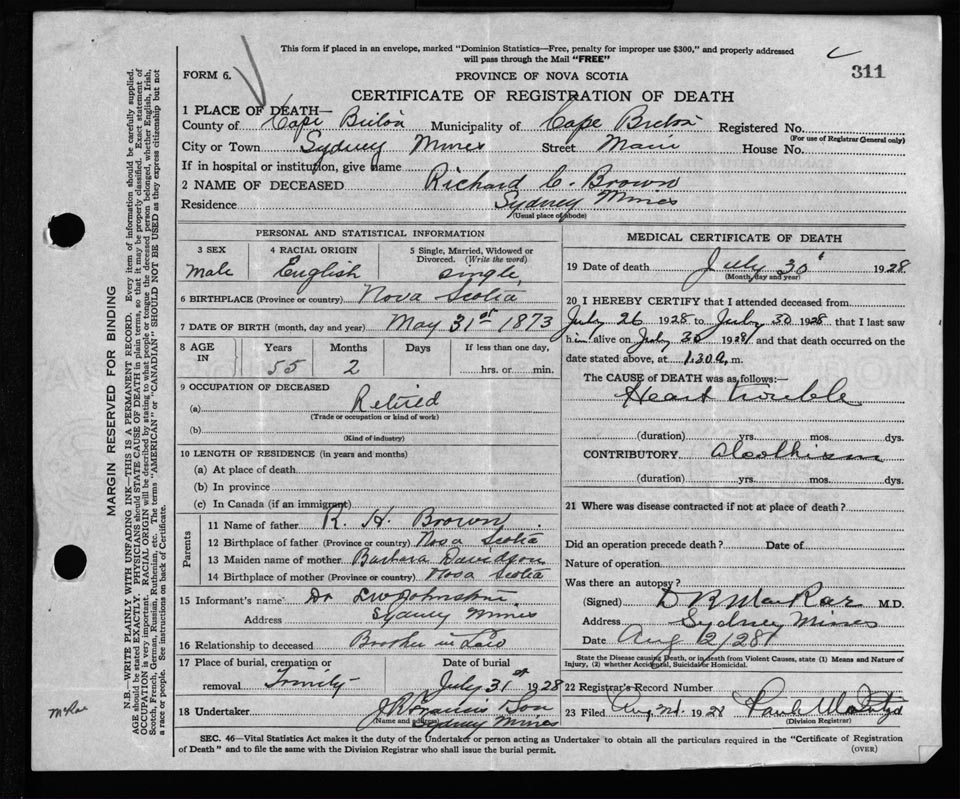 This form if placed in an envelope, marked "Dominion Statistics—Free, penalty for improper use $300," and properly addressed
will pass through the Mail "FREE"
311
FORM 6.
PROVINCE OF NOVA SCOTIA
CERTIFICATE OF REGISTRATION OF DEATH
1 PLACE OF DEATH—
County of Cape Breton Municipality of Cape Breton Registered No.
(For use of Registrar General only)
City or Town Sydney Mines Street Main House No.
If in hospital or institution, give name
2 NAME OF DECEASED Richard C. Brown
Residence Sydney Mines
(Usual place of abode)
PERSONAL AND STATISTICAL INFORMATION
3 SEX 4 RACIAL ORIGIN 5 Single, Married, Widowed or
Divorced. (Write the word)
Male English single
6 BIRTHPLACE (Province or country) Nova Scotia
7 DATE OF BIRTH (month, day and year) May 31st 1873
8 AGE IN Years Months Days If less than one day,
55 2 hrs. or min.
9 OCCUPATION OF DECEASED
(a) Retired
(Trade or occupation or kind of work)
(b)
(Kind of industry)
10 LENGTH OF RESIDENCE (in years and months)
(a) At place of death
(b) In province
(c) In Canada (if an immigrant)
Parents
11 Name of father R. H. Brown
12 Birthplace of father (Province or country) Nova Scotia
13 Maiden name of mother Barbara Davidson
14 Birthplace of mother (Province or country) Nova Scotia
15 Informant's name Dr L W Johnstone
Address Sydney Mines
16 Relationship to deceased Brother in Law
17 Place of burial, cremation or Date of burial
removal Trinity July 31st 1928
18 Undertaker Son
(Name and address) Sydney Mines
MEDICAL CERTIFICATE OF DEATH
19 Date of death July 30 1928
(Month, day and year)
20 I HEREBY CERTIFY that I attended deceased from
July 26 1928 to July 30 1928 that I last saw
him alive on July 30 1928 and that death occurred on the
date stated above, at 1.30 a. m.
The CAUSE OF DEATH was as follows:—
Heart trouble
(duration) yrs. mos. dys.
CONTRIBUTORY Alcolhism
(duration) yrs. mos. dys.
21 Where was disease contracted if not at place of death?
Did an operation precede death? Date of
Nature of operation
Was there an autopsy?
(Signed) M.D.
Address Sydney Mines
Date Aug 2/28
State the Disease causing Death, or in death from Violent Causes, state (1) Means and Nature of
Injury, (2) whether Accidental, Suicidal or Homicidal.
22 Registrar's Record Number
23 Filed Aug 1928
(Division Registrar)
SEC. 46—Vital Statistics Act makes it the duty of the Undertaker or person acting as Undertaker to obtain all the particulars required in the "Certificate of Registration
of Death" and to file the same with the Division Registrar who shall issue the burial permit.
(OVER)
MARGIN RESERVED FOR BINDING
N.B.—WRITE PLAINLY WITH UNFADING INK—THIS IS A PERMANENT RECORD. Every item of information should be carefully supplied.
AGE should be stated EXACTLY. PHYSICIANS should STATE CAUSE OF DEATH in plain terms, so that it may be properly classified. Exact statement of
OCCUPATION is very important. RACIAL ORIGIN will be described by stating to what people or tongue the deceased person belonged, whether English, Irish,
Scotch, French, German, Russian, Ruthenian, etc. The terms "AMERICAN" or "CANADIAN" SHOULD NOT BE USED as they express citizenship but not
a race or people. See instructions on back of Certificate.